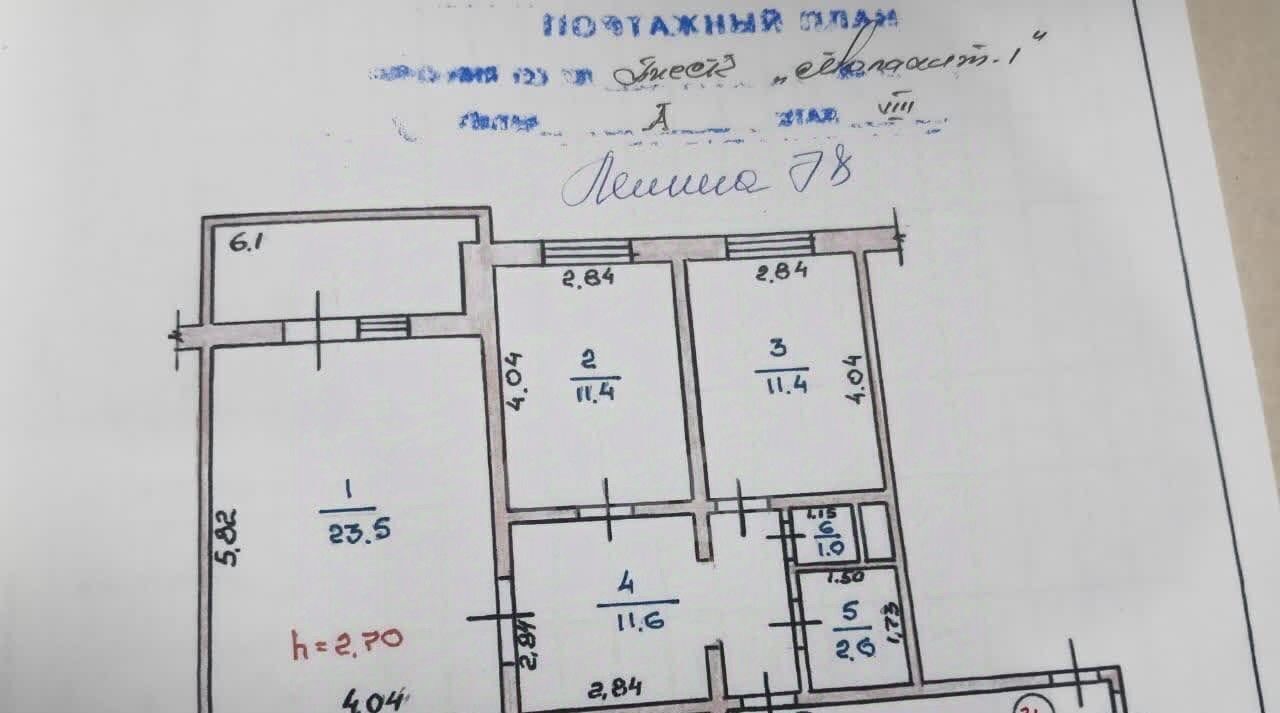 ПОЭТАЖНЫЙ ПЛАН
А VIII
Ленина 78
6.1
2,84
2,84
4.04
2
11.4
3
11.4
4.04
1
23.5
5,82
1.15
6
1.0
1.50
4
11.6
5
2.6
1,73
h=2,70
2,84
2,84
4,04